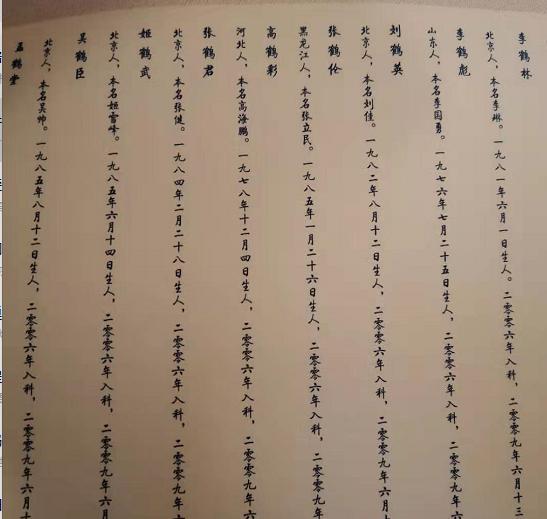 李鹤林
北京人，本名李琳。一九八一年六月一日生人。二零零六年入科，二零零九年六月十三
李鹤彪
山东人，本名李国勇。一九七六年七月二十五日生人，二零零六年入科，二零零九年六
刘鹤英
北京人，本名刘佳。一九八二年八月十二日生人，二零零六年入科，二零零九年六月十
张鹤伦
黑龙江人，本名张立民。一九八五年一月二十六日生人，二零零六年入科，二零零九年
高鹤彩
河北人，本名高海鹏。一九七八年十二月四日生人，二零零六年入科，二零零九年六月
张鹤君
北京人，本名张健。一九八四年二月二十八日生人，二零零六年入科，二零零九年六月十
姬鹤武
北京人，本名姬雪峰。一九八五年六月十四日生人，二零零六年入科，二零零九年六月
吴鹤臣
北京人，本名吴帅。一九八五年八月十二日生人，二零零六年入科，二零零九年六月十
孟鹤堂